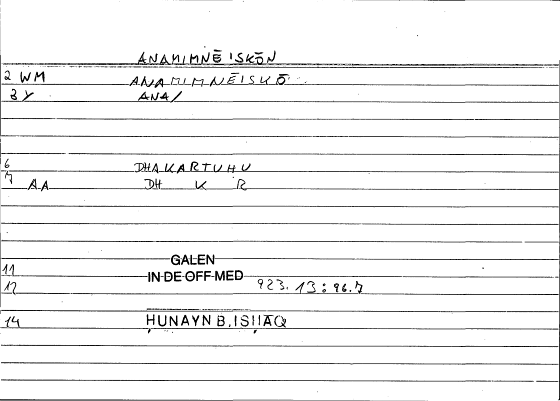 ANAMIMNĒISKŌN
2 WM ANAMIMNĒISKŌ
3 Y ANA/
6 DHAKARTUHU
7 AA DH K R
GALEN
11
IN DE OFF MED
12 923.13:96.7
14 ḤUNAYN B.ISḤĀQ